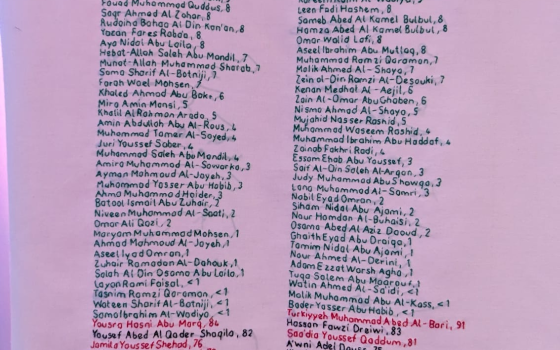 Fouad Muhammad Quddus, 8
Saqr Ahmad Al Zahar, 8
Rudaina Bahaa Al Din Kan'an, 8
Yazan Fares Raboa, 8
Aya Nidal Abu Laila, 8
Hebat-Allah Salah Abu Mandil, 7
Munat-Allah Muhammad Sharab, 7
Sama Sharif Al-Batniji, 7
Farah Wael Mohsen, 7
Khaled Ahmad Abu Bakr, 6
Mira Amin Mansi, 5
Khalil Al Rahman Arada, 5
Amin Abdullah Abu Al-Rous, 4
Muhammad Tamer Al-Sayed, 4
Juri Youssef Saber, 4
Muhammad Saleh Abu Mandil, 4
Amira Muhammad Al-Sawarka, 3
Ayman Mahmoud Al-Jayeh, 3
Muhammad Yasser Abu Habib, 3
Ahmad Muhammad Haider, 3
Batool Ismail Abu Zuhair, 2
Niveen Muhammad Al-Saati, 2
Omar Ali Qazi, 2
Maryam Muhammad Mohsen, 1
Ahmad Mahmoud Al-Jayeh, 1
Aseel Iyad Omran, 1
Zuhair Ramadan Al-Dahouk, 1
Salah Al Din Osama Abu Laila, 1
Layan Rami Faisal, <1
Tasnim Ramzi Qaraman, <1
Wateen Sharif Al-Batniji, <1
Sama Ibrahim Al-Wadiya, <1
Yousra Hosni Abu Marq, 86
Yousef Abed Al Qader Shaqila, 82
Jamila Youssef Shehad, 76
Leen Fadi Hashem, 8
Sameb Abed Al Kamel Bulbul, 8
Hamza Abed Al Kamel Bulbul, 8
Omar Walid Lafi, 8
Aseel Ibrahim Abu Mutlaq, 8
Muhammad Ramzi Qaraman, 7
Malik Ahmed Al-Shaya, 7
Zein al-Din Ramzi Al-Desouki, 7
Kenan Medhat Al-Aejil, 6
Zain Al-Omar Abu Ghaben, 6
Nisma Ahmad Al-Shaya, 5
Mujahid Nasser Rashid, 4
Muhammad Waseem Rashid, 4
Muhammad Ibrahim Abu Haddaf, 4
Zainab Fakhri Radi, 4
Essam Ehab Youssef, 3
Saif Al-Din Saleh Al-Argan, 3
Judy Muhammad Abu Showqa, 3
Lana Muhammad Al-Samri, 3
Nabil Eyad Omran, 2
Siham Nidal Abu Ajami, 2
Nour Hamdan Al-Buhaisi, 2
Osama Abed Al Aziz Daoud, 2
Ghaith Eyad Abu Draiqa, 1
Tamim Nidal Abu Ajami, 1
Nour Ahmed Al-Derini, 1
Adam Ezzat Warsh Agha, 1
Tuqa Salem Abu Maarouf, 1
Watin Ahmed Al-Sa'idi, <1
Malik Muhammad Abu Al-Kass, <1
Bader Yasser Abu Habib, <1
Turkiyyeh Muhammad Abed Al-Bari, 91
Hassan Fawzi Dreiwi, 83
Saa'dia Youssef Qaddum, 81
A'wni Adel Dousa, 75